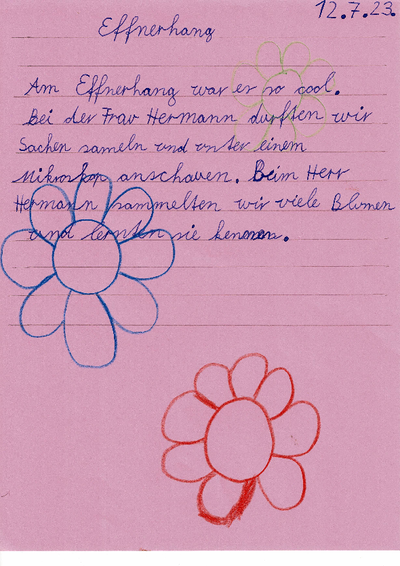 12.7.23.
Effnerhang
Am Effnerhang war er so cool.
Bei der Frau Hermann durften wir
Sachen sameln und unter einem
Mikroskop anschauen. Beim Herr
Hermann sammelten wir viele Blumen
und lernten sie kennen.